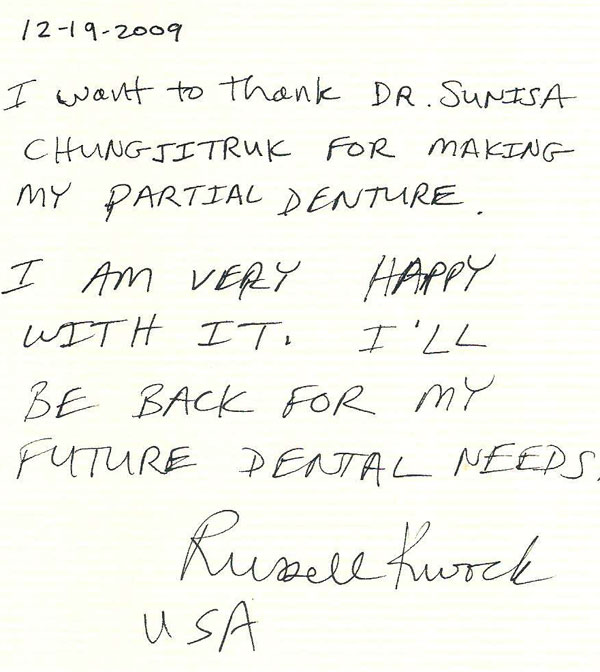 12-19-2009
I want to thank DR. SUNISA
CHUNGJITRUK FOR MAKING
MY PARTIAL DENTURE.
I AM VERY HAPPY
WITH IT. I'LL
BE BACK FOR MY
FUTURE DENTAL NEEDS.
Russell Kwock
USA